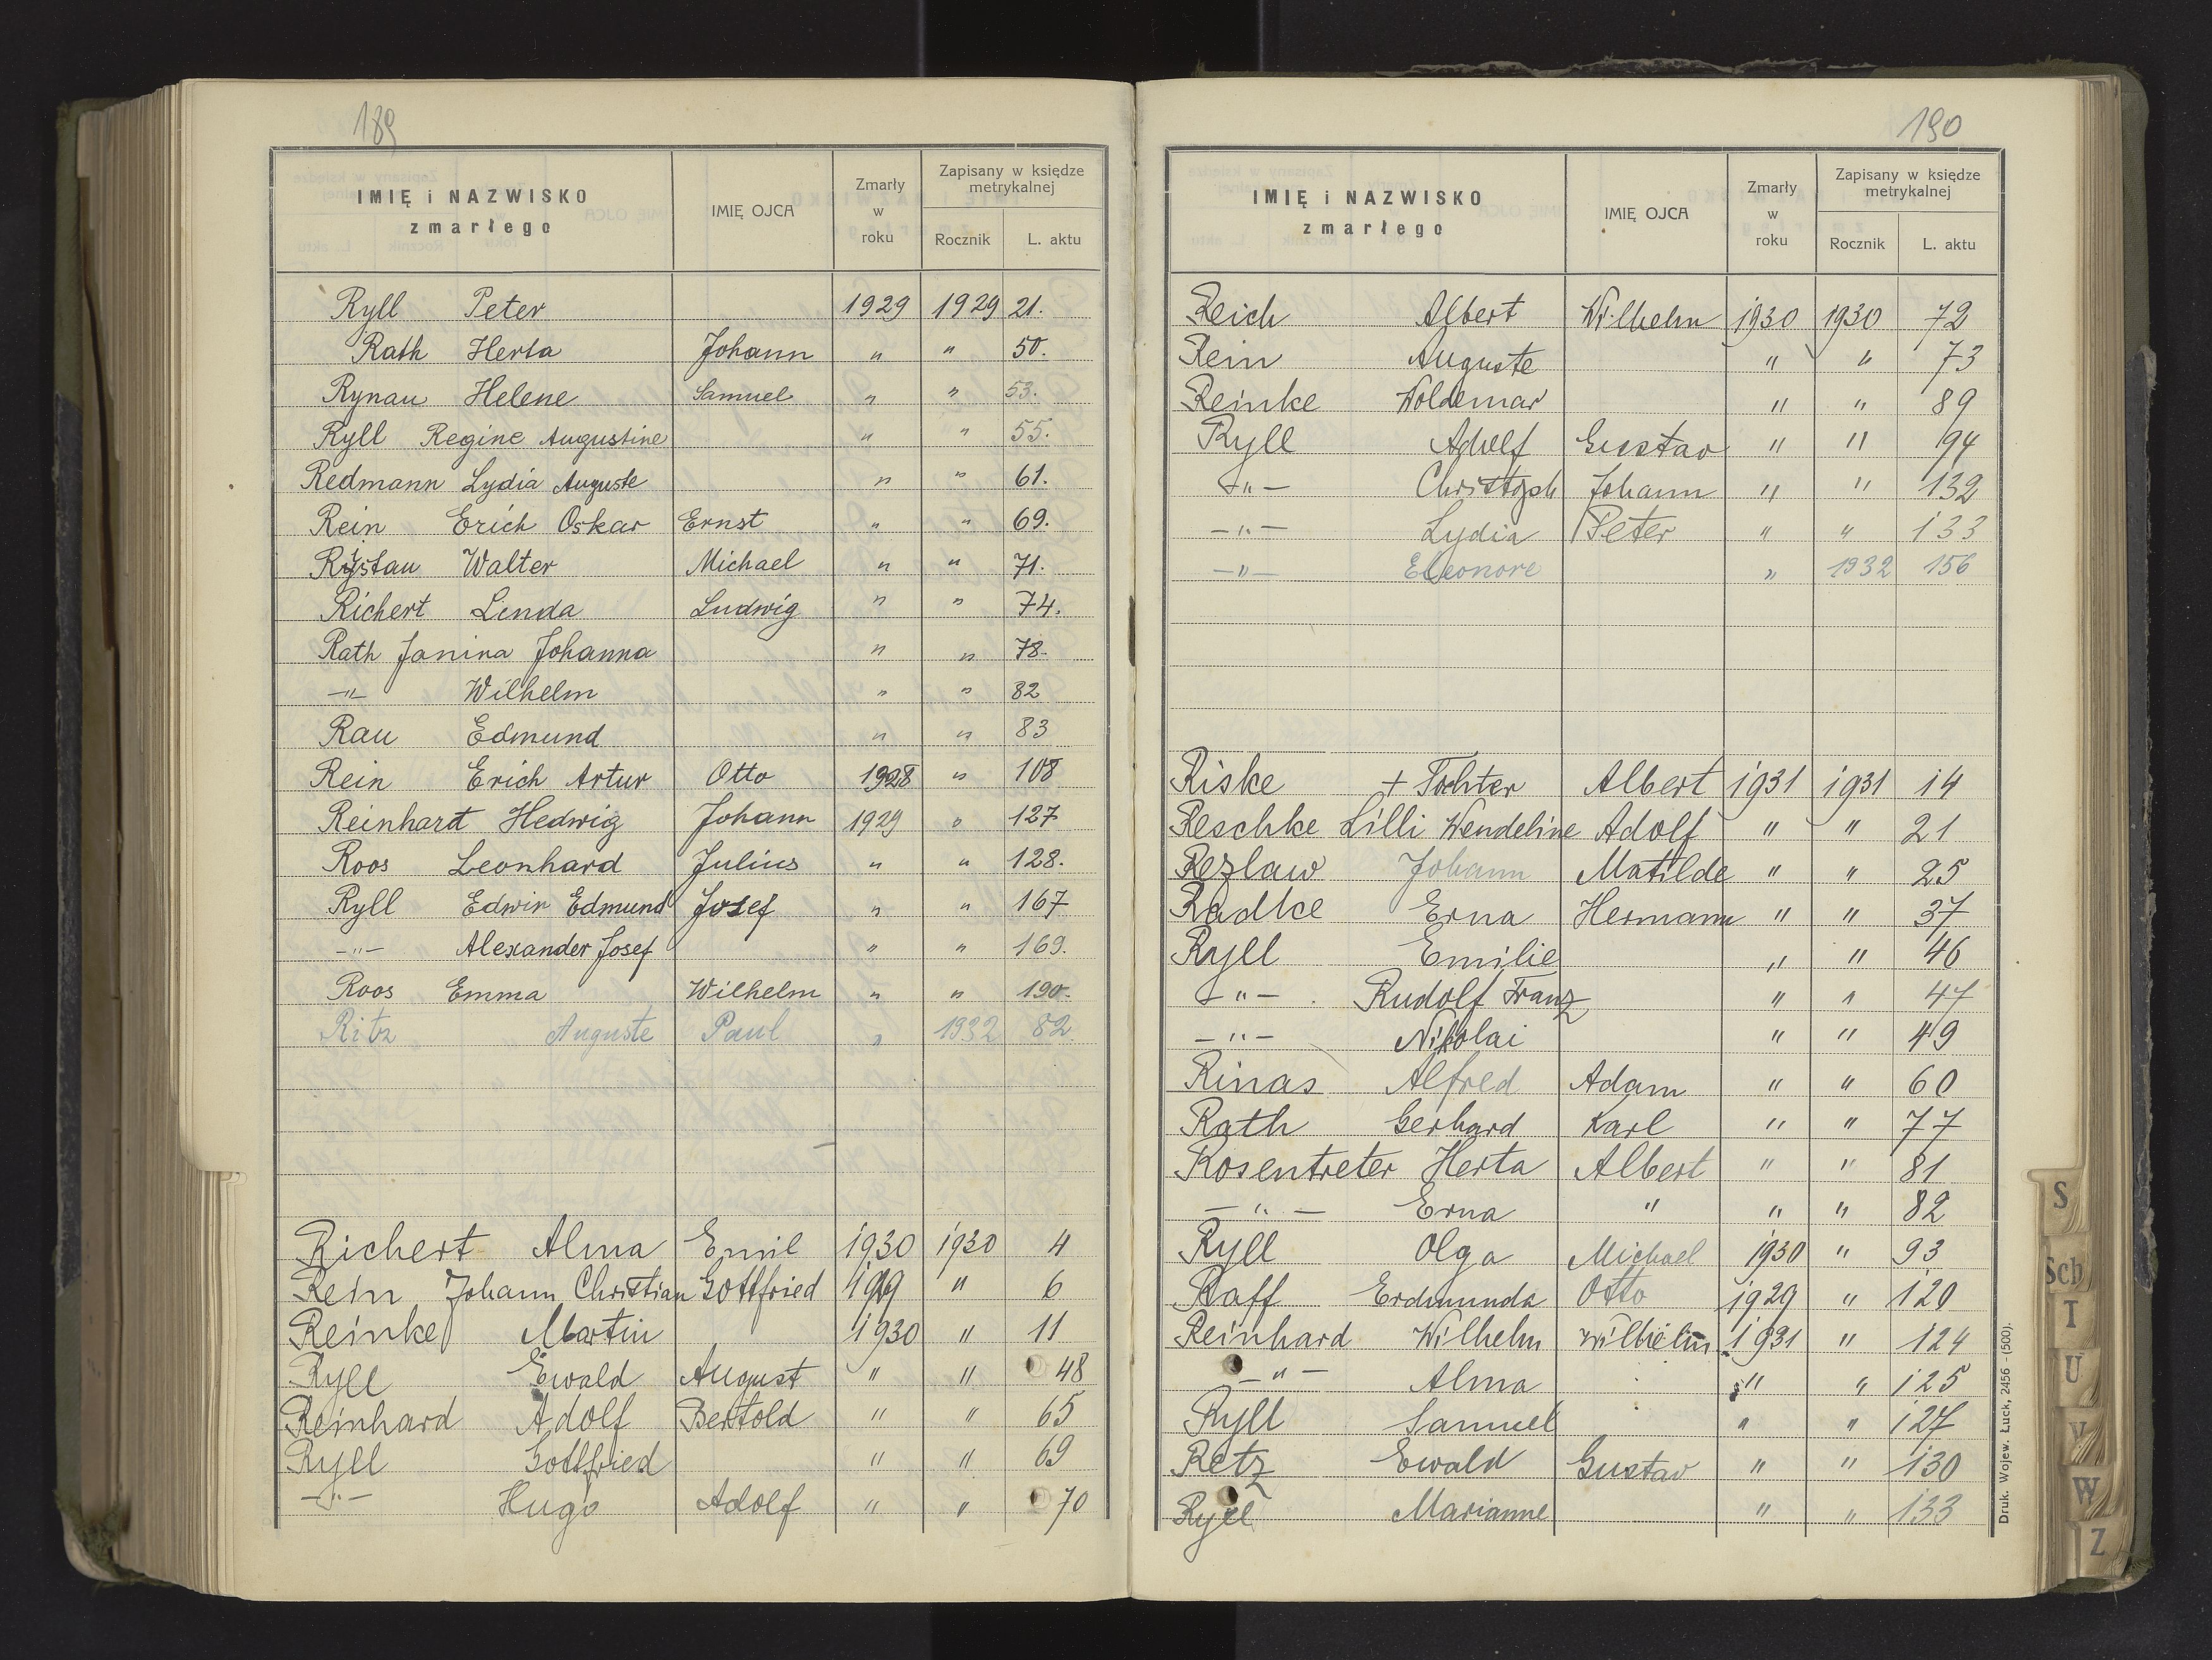 189
IMIĘ i NAZWISKO zmarłego | IMIĘ OJCA | Zmarły w roku | Zapisany w księdze metrykalnej
Rocznik | L. aktu
Ryll Peter 1929 1929 21.
Rath Herta Johann " " 50.
Rynau Helene Samuel " " 53.
Ryll Regine Augustine " " 55.
Redmann Lydia Auguste " " 61.
Rein Erich Oskar Ernst " " 69.
Rystau Walter Michael " " 71.
Richert Linda Ludwig " " 74.
Rath Janina Johanna " " 78.
-"- Wilhelm " " 82
Rau Edmund " " 83
Rein Erich Artur Otto 1928 " 108
Reinhardt Hedwig Johann 1929 " 127
Roos Leonhard Julius " " 128.
Ryll Edwin Edmund Josef " " 167
-"- Alexander Josef " " 169.
Roos Emma Wilhelm " " 190.
Ritz Auguste Paul " 1932 82.
Richert Alma Emil 1930 1930 4
Rein Johann Christian Gottfried 1929 " 6
Reinke Martin 1930 " 11
Ryll Ewald August " " 48
Reinhard Adolf Bertold " " 65
Ryll Gottfried " " 69
-"- Hugo Adolf " " 70
190
IMIĘ i NAZWISKO zmarłego | IMIĘ OJCA | Zmarły w roku | Zapisany w księdze metrykalnej
Rocznik | L. aktu
Reich Albert Wilhelm 1930 1930 72
Rein Auguste " " 73
Reinke Woldemar " " 89
Ryll Adolf Gustav " " 94
-"- Christoph Johann " " 132
-"- Lydia Peter " " 133
-"- Eleonore " 1932 156
Riske + Tochter Albert 1931 1931 14
Reschke Lilli Wendeline Adolf " " 21
Rezlaw Johann Matilde " " 25
Radke Erna Hermann " " 37
Ryll Emilie " " 46
-"- Rudolf Franz " " 47
-"- Nikolai " " 49
Rinas Alfred Adam " " 60
Rath Gerhard Karl " " 77
Rosentreter Herta Albert " " 81
-"- Erna " " " 82
Ryll Olga Michael 1930 " 93
Raff Erdmunda Otto 1929 " 120
Reinhard Wilhelm Wilhelm 1931 " 124
-"- Alma " " 125
Ryll Samuel " " 127
Retz Ewald Gustav " " 130
Ryll Marianne " " 133
Druk. Wojew. Łuck, 2456 - (500).
S
Sch
T
U
V
W
Z